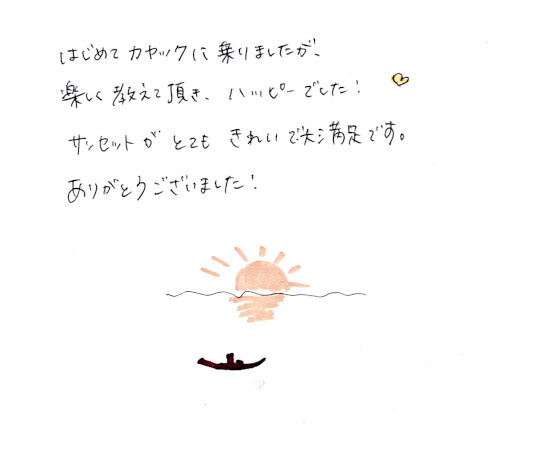 はじめてカヤックに乗りましたが、
楽しく教えて頂き、ハッピーでした!
サンセットがとてもきれいで大満足です。
ありがとうございました!